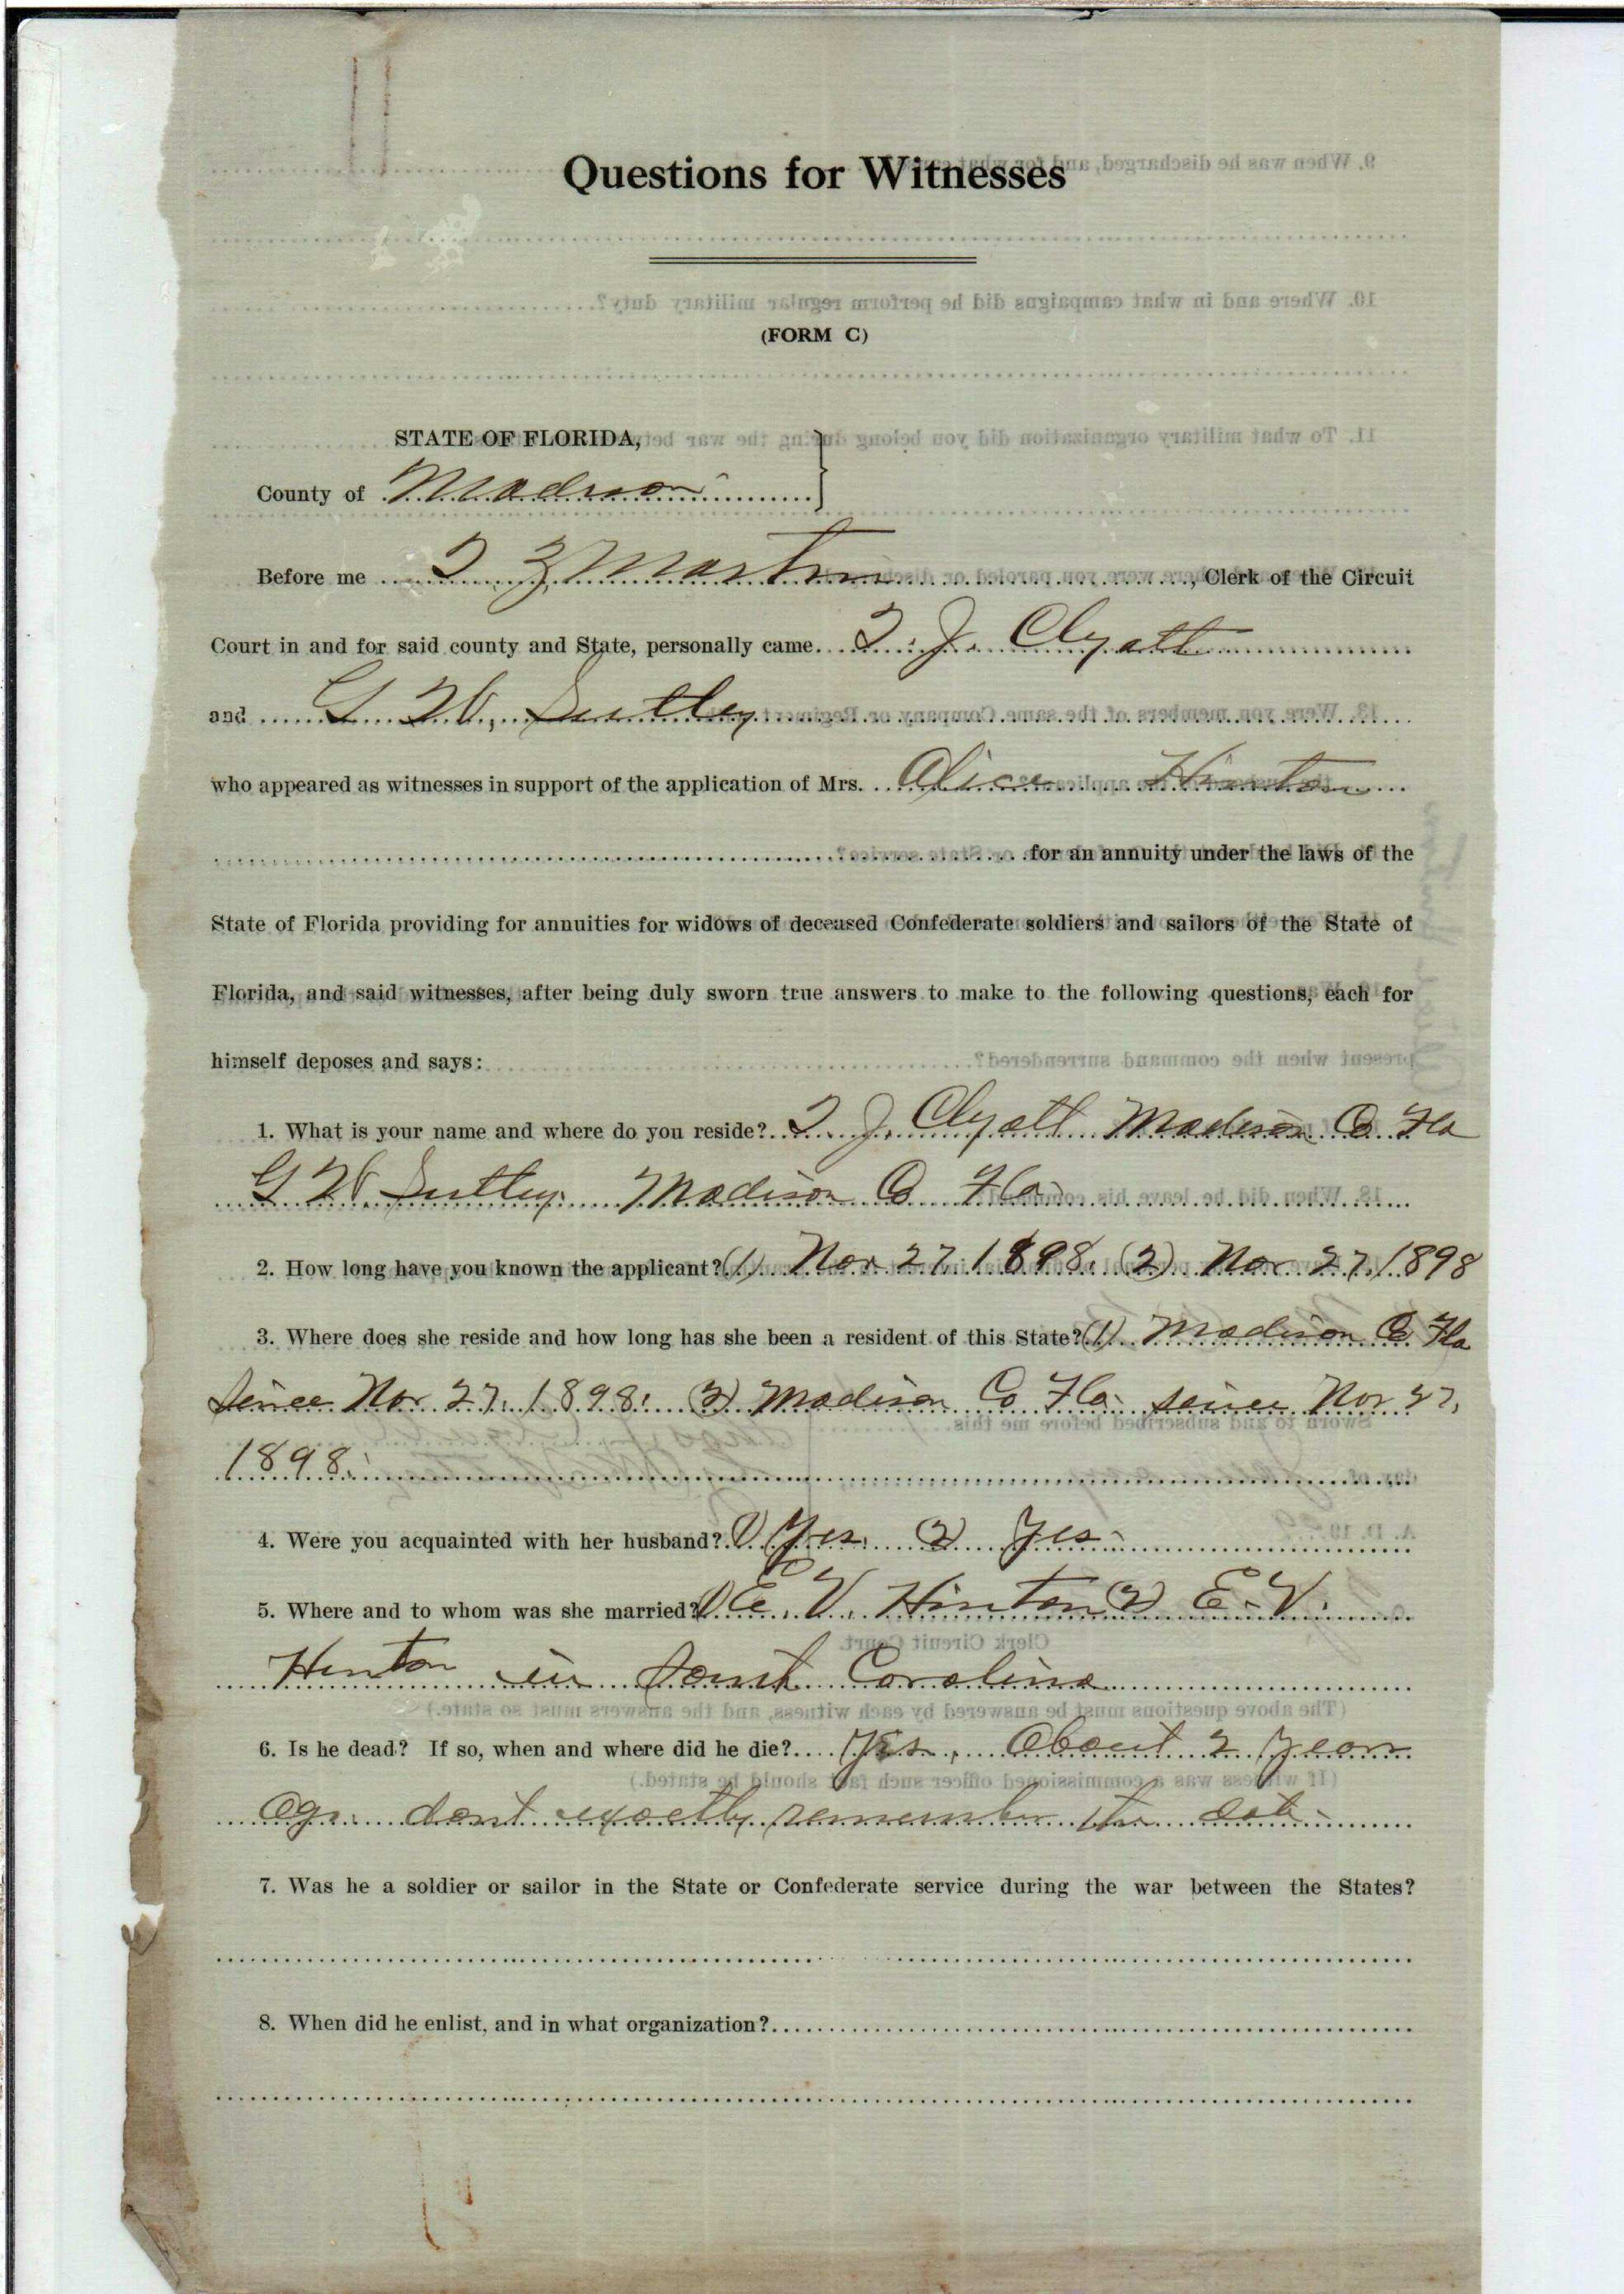 Questions for Witnesses
(FORM C)
STATE OF FLORIDA,
County of Madison
Before me T Z Martin, Clerk of the Circuit
Court in and for said county and State, personally came T. J. Clyatt
and G W, Sutley
who appeared as witnesses in support of the application of Mrs. Alice Hinton
for an annuity under the laws of the
State of Florida providing for annuities for widows of deceased Confederate soldiers and sailors of the State of
Florida, and said witnesses, after being duly sworn true answers to make to the following questions, each for
himself deposes and says:
1. What is your name and where do you reside? T J. Clyatt Madison Co Fla
G W Sutley. Madison Co Fla
2. How long have you known the applicant? (1) Nov 27 1898. (2) Nov 27, 1898
3. Where does she reside and how long has she been a resident of this State? (1) Madison Co Fla
Since Nov. 27. 1898. (2) Madison Co Fla. since Nov 27,
1898.
4. Were you acquainted with her husband? 1) Yes. 2) Yes.
5. Where and to whom was she married? 1) E. V. Hinton 2) E. V.
Hinton in South Carolina
6. Is he dead? If so, when and where did he die? Yes, About 2 years
ago. dont exactly remember the date.
7. Was he a soldier or sailor in the State or Confederate service during the war between the States?
8. When did he enlist, and in what organization?